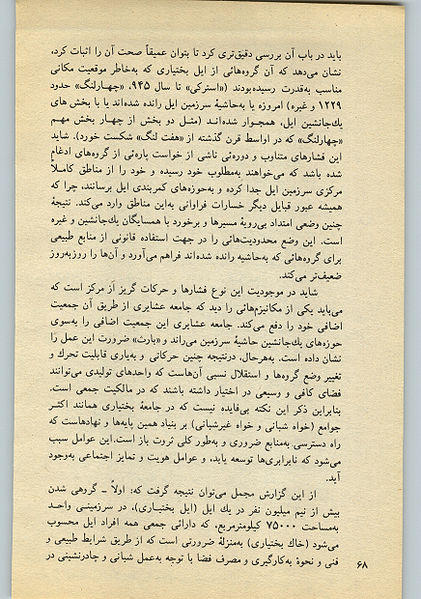 باید در باب آن بررسی دقیق‌تری کرد تا بتوان عمیقاً صحت آن را اثبات کرد،
نشان می‌دهد که آن گروه‌هائی از ایل بختیاری که به‌خاطر موقعیت مکانی
مناسب به‌قدرت رسیده‌بودند («استرکی» تا سال ۹۴۵، «چهارلنگ» حدود
۱۲۲۹ و غیره) امروزه یا به‌حاشیهٔ سرزمین ایل رانده شده‌اند یا با بخش های
یك‌جانشین ایل، همجوار شده‌اند (مثل دو بخش از چهار بخش مهم
«چهارلنگ» که در اواسط قرن گذشته از «هفت لنگ» شکست خورد). شاید
این فشارهای متناوب و دوره‌ئی ناشی از خواست پاره‌ئی از گروه‌های ادغام
شده باشد که می‌خواهند به‌مطلوب خود رسیده و خود را از مناطق کاملاً
مرکزی سرزمین ایل جدا کرده و به‌حوزه‌های کمربندی ایل برسانند، چرا که
همیشه عبور قبایل دیگر خسارات فراوانی به‌این مناطق وارد می‌کند. نتیجهٔ
چنین وضعی امتداد بی‌رویهٔ مسیرها و برخورد با همسایگان یك‌جانشین و غیره
است. این وضع محدودیت‌هائی را در جهت استفاده قانونی از منابع طبیعی
برای گروه‌هائی که به‌حاشیه رانده شده‌اند فراهم می‌آورد و آن‌ها را روزبه‌روز
ضعیف‌تر می‌کند.
شاید در موجودیت این نوع فشارها و حرکات گریز از مرکز است که
می‌باید یکی از مکانیزم‌هائی را دید که جامعه عشایری از طریق آن جمعیت
اضافی خود را دفع می‌کند. جامعه عشایری این جمعیت اضافی را به‌سوی
حوزه‌های یك‌جانشین حاشیهٔ سرزمین می‌راند و «بارث» ضرورت این عمل را
نشان داده است. به‌هرحال، درنتیجه چنین حرکاتی و به‌یاری قابلیت تحرك و
تغییر وضع گروه‌ها و استقلال نسبی آن‌هاست که واحدهای تولیدی می‌توانند
فضای کافی و وسیعی در اختیار داشته باشند که در مالکیت جمعی است.
بنابراین ذکر این نکته بی‌فایده نیست که در جامعهٔ بختیاری همانند اکثر
جوامع (خواه شبانی و خواه غیرشبانی) بر بنیاد همین پایه‌ها و نهادهاست که
راه دسترسی به‌منابع ضروری و به‌طور کلی ثروت باز است.این عوامل سبب
می‌شود که نابرابری‌ها توسعه یابد، و عوامل هویت و تمایز اجتماعی به‌وجود
آید.
از این گزارش مجمل می‌توان نتیجه گرفت که: اولاً ـ گروهی شدن
بیش از نیم میلیون نفر در یك ایل (ایل بختیاری)، در سرزمینی واحد
به‌مساحت ۷۵۰۰۰ کیلومترمربع، که دارائی جمعی همه افراد ایل محسوب
می‌شود (خاك بختیاری) به‌منزلهٔ ضرورتی است که از طریق شرایط طبیعی و
فنی و نحوهٔ به‌کارگیری و مصرف فضا با توجه به‌عمل شبانی و چادرنشینی در
۶۸